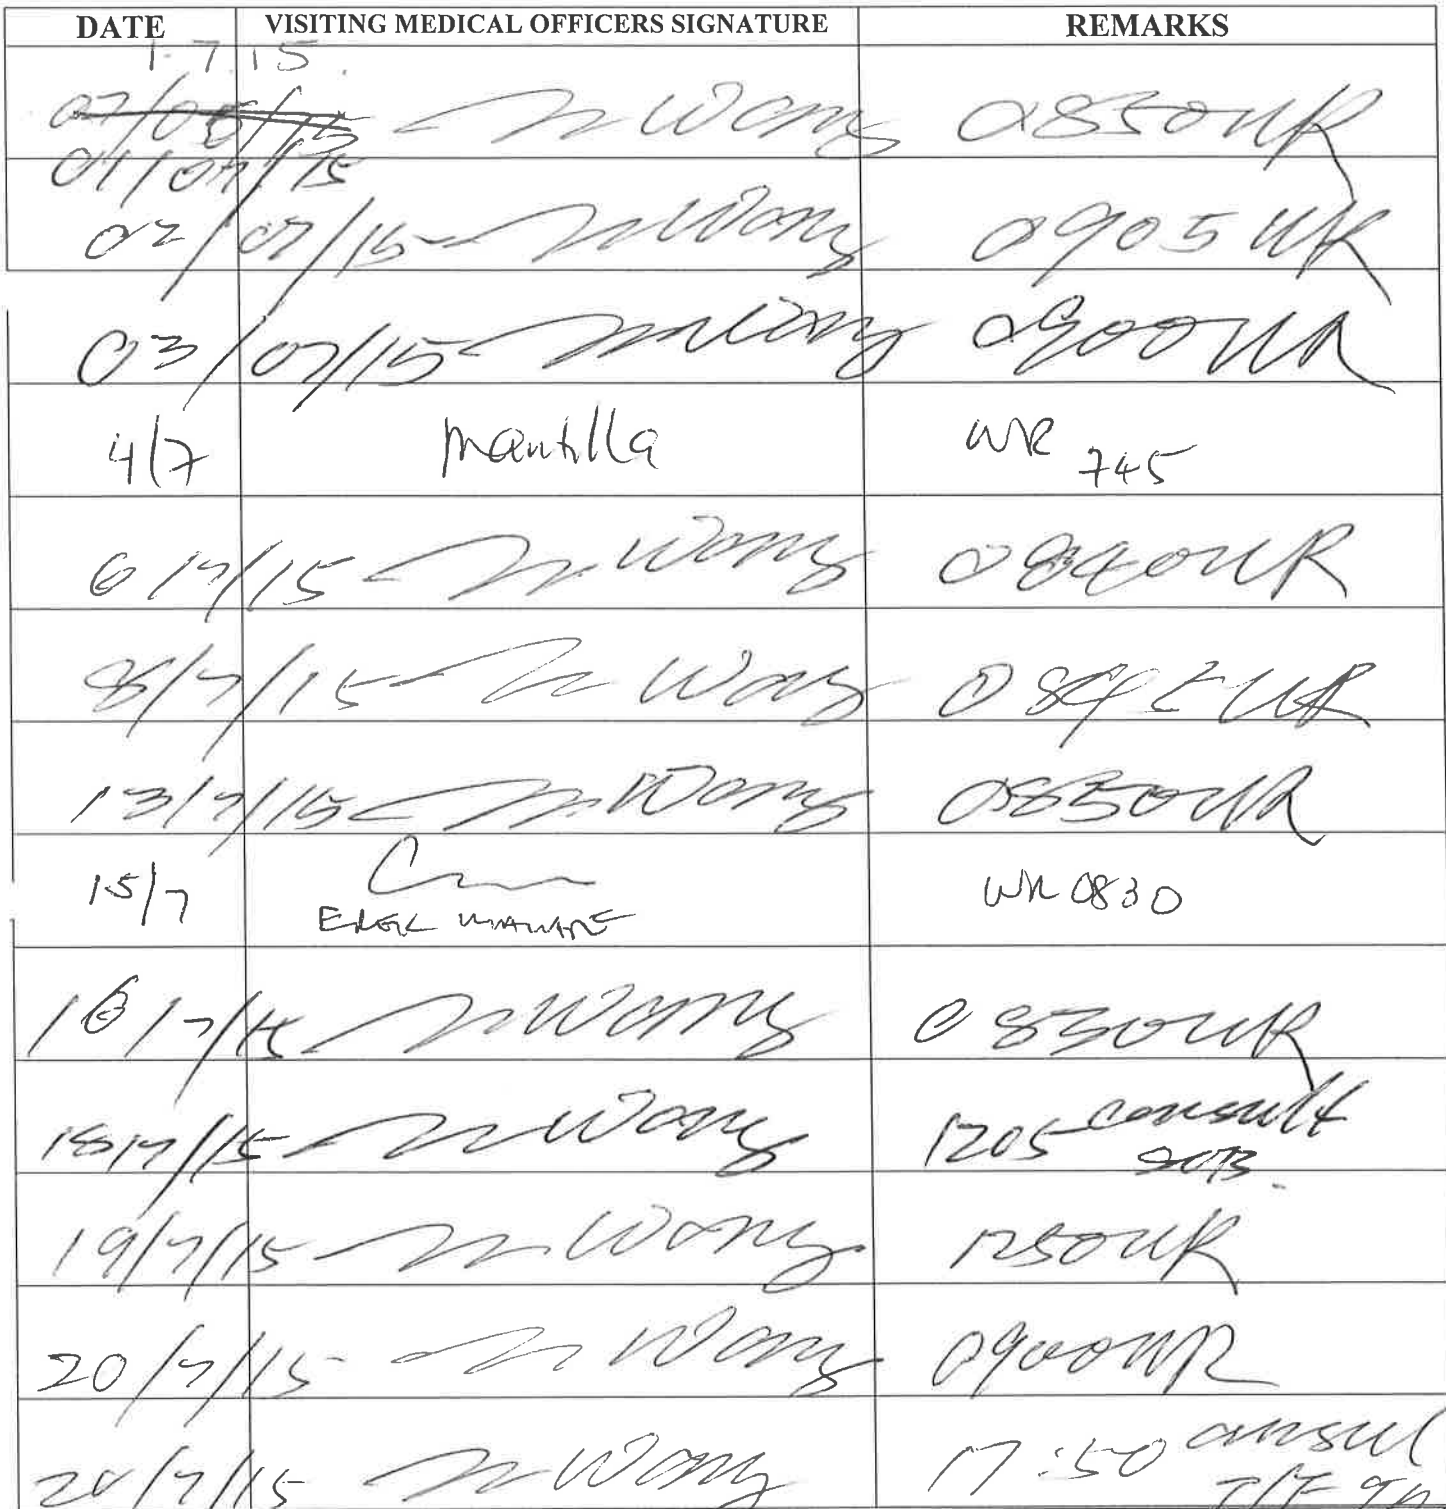 DATE VISITING MEDICAL OFFICERS SIGNATURE REMARKS
1.7.15.
07/06/15 Wong 0850 WR
01/07/15
02/07/15 Wong 0905 WR
03/07/15 Wong 0900 WR
4/7 Mantilla WR 745
6/7/15 Wong 0840 WR
8/7/15 Wong 0845 WR
13/7/15 Wong 0850 WR
15/7 WR 0830
16/7/15 Wong 0830 WR
18/7/15 Wong 1205 consult
19/7/15 Wong 1250 WR
20/7/15 Wong 0900 WR
20/7/15 Wong 17:50